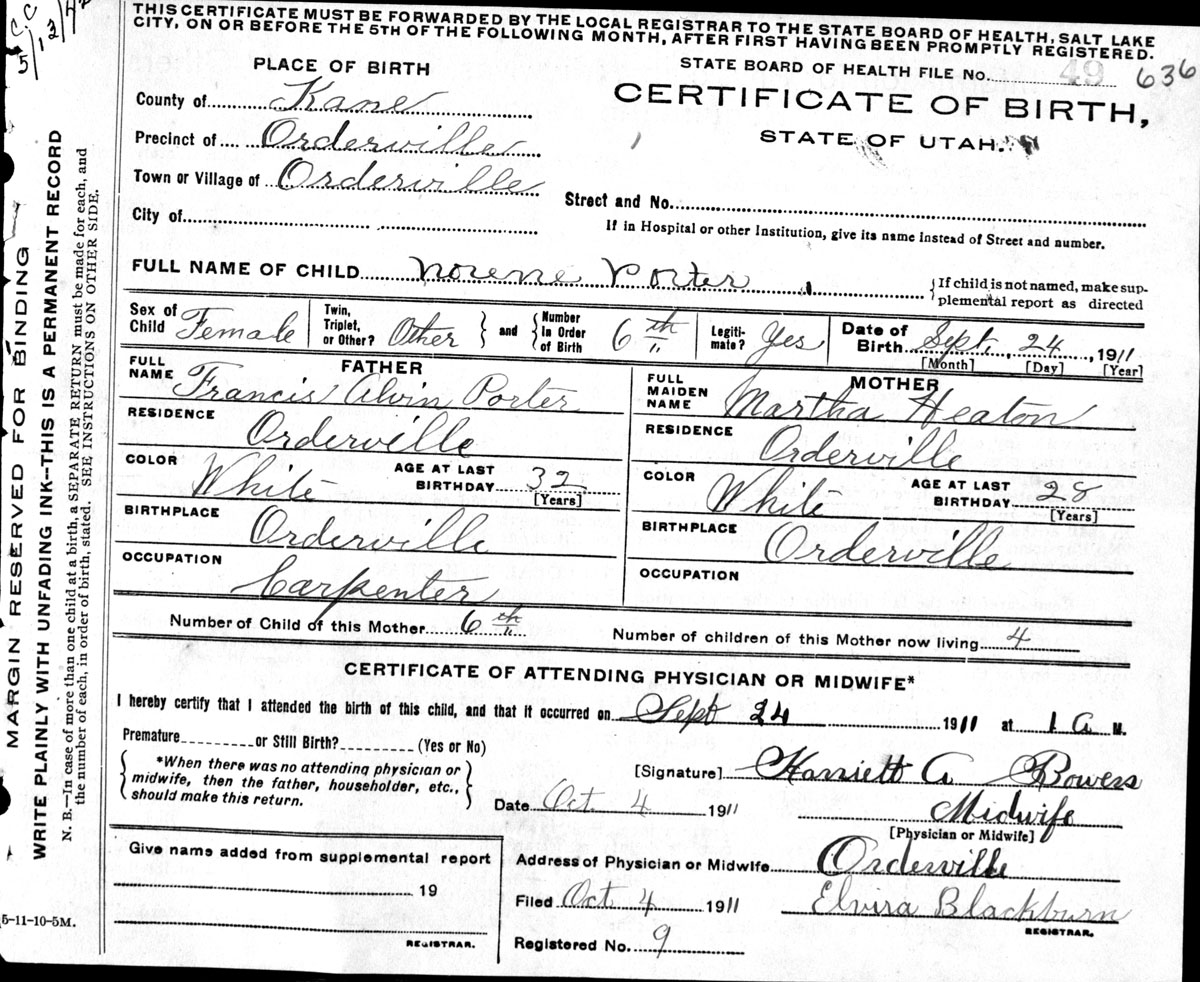 C.C
5/12/42
THIS CERTIFICATE MUST BE FORWARDED BY THE LOCAL REGISTRAR TO THE STATE BOARD OF HEALTH, SALT LAKE
CITY, ON OR BEFORE THE 5TH OF THE FOLLOWING MONTH, AFTER FIRST HAVING BEEN PROMPTLY REGISTERED.
STATE BOARD OF HEALTH FILE No. 49 636
PLACE OF BIRTH
CERTIFICATE OF BIRTH,
STATE OF UTAH.
County of Kane
Precinct of Orderville
Town or Village of Orderville
Street and No.
City of
If in Hospital or other Institution, give its name instead of Street and number.
FULL NAME OF CHILD Norene Porter
If child is not named, make sup-
plemental report as directed
Sex of Child Female Twin, Triplet, or Other? Other and Number in Order of Birth 6th Legiti-mate? Yes Date of Birth Sept. 24, 1911
[Month] [Day] [Year]
FATHER
FULL NAME Francis Alvin Porter
RESIDENCE Orderville
COLOR White AGE AT LAST BIRTHDAY 32 [Years]
BIRTHPLACE Orderville
OCCUPATION Carpenter
MOTHER
FULL MAIDEN NAME Martha Heaton
RESIDENCE Orderville
COLOR White AGE AT LAST BIRTHDAY 28 [Years]
BIRTHPLACE Orderville
OCCUPATION
Number of Child of this Mother 6th Number of children of this Mother now living 4
CERTIFICATE OF ATTENDING PHYSICIAN OR MIDWIFE*
I hereby certify that I attended the birth of this child, and that it occurred on Sept 24 1911 at 1 A M.
Premature or Still Birth? (Yes or No)
*When there was no attending physician or
midwife, then the father, householder, etc.,
should make this return.
[Signature] Harriett A Bowers
Date Oct 4 1911 Midwife
[Physician or Midwife]
Give name added from supplemental report
19
REGISTRAR.
Address of Physician or Midwife Orderville
Filed Oct 4 1911 Elvira Blackburn
REGISTRAR.
Registered No. 9
5-11-10-5M.
MARGIN RESERVED FOR BINDING
WRITE PLAINLY WITH UNFADING INK—THIS IS A PERMANENT RECORD
N. B.—In case of more than one child at a birth, a SEPARATE RETURN must be made for each, and
the number of each, in order of birth, stated. SEE INSTRUCTIONS ON OTHER SIDE.